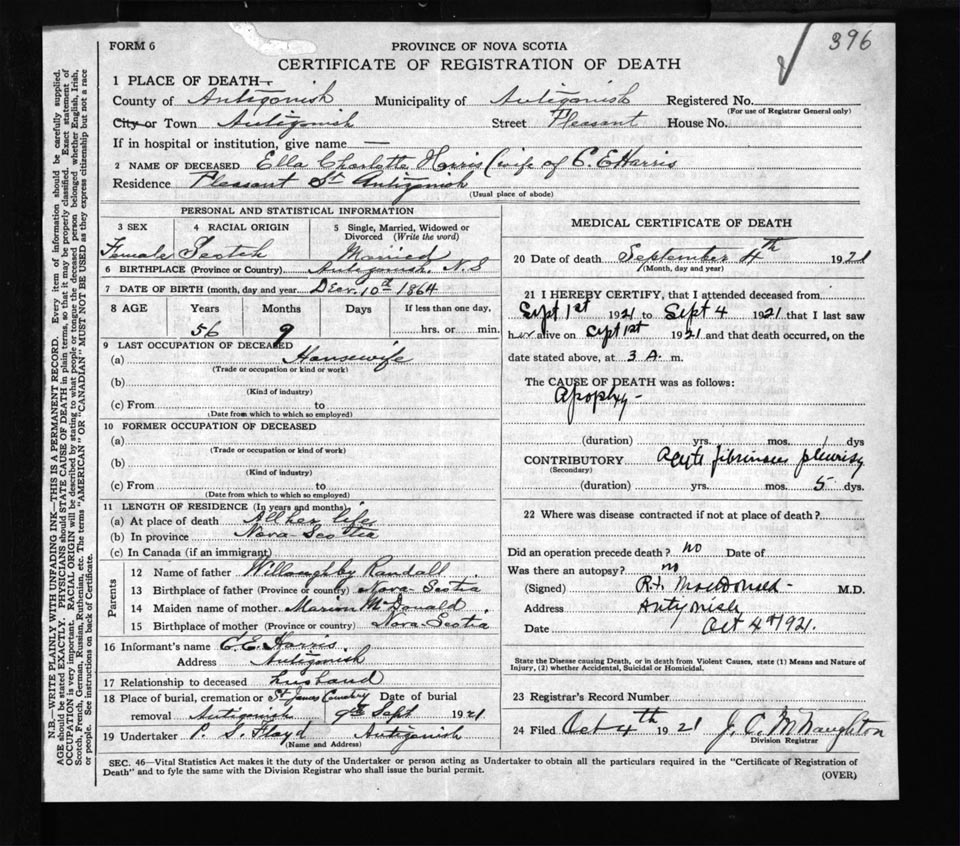 FORM 6
PROVINCE OF NOVA SCOTIA
396
CERTIFICATE OF REGISTRATION OF DEATH
1 PLACE OF DEATH—
County of Antigonish Municipality of Antigonish Registered No.
(For use of Registrar General only)
City or Town Antigonish Street Pleasant House No.
If in hospital or institution, give name —
2 NAME OF DECEASED Ella Charlotte Harris (wife of C. E Harris
Residence Pleasant St Antigonish
(Usual place of abode)
PERSONAL AND STATISTICAL INFORMATION
3 SEX 4 RACIAL ORIGIN 5 Single, Married, Widowed or Divorced (Write the word)
Female Scotch Married
6 BIRTHPLACE (Province or Country) Antigonish. N.S
7 DATE OF BIRTH (month, day and year) Decr. 10th 1864
8 AGE Years Months Days If less than one day,
56 9 hrs. or min.
9 LAST OCCUPATION OF DECEASED
(a) Housewife
(Trade or occupation or kind of work)
(b)
(Kind of industry)
(c) From to
(Date from which to which so employed)
10 FORMER OCCUPATION OF DECEASED
(a)
(Trade or occupation or kind of work)
(b)
(Kind of industry)
(c) From to
(Date from which to which so employed)
11 LENGTH OF RESIDENCE (In years and months)
(a) At place of death All her life
(b) In province Nova-Scotia
(c) In Canada (if an immigrant)
Parents
12 Name of father Willoughby Randall
13 Birthplace of father (Province or country) Nova-Scotia
14 Maiden name of mother Marion McDonald
15 Birthplace of mother (Province or country) Nova-Scotia
16 Informant's name C. E. Harris
Address Antigonish
17 Relationship to deceased husband
18 Place of burial, cremation or St James Cemetery Date of burial
removal Antigonish 9th Sept 1921
19 Undertaker P. S. Floyd Antigonish
(Name and Address)
MEDICAL CERTIFICATE OF DEATH
20 Date of death September 4th 1921
(Month, day and year)
21 I HEREBY CERTIFY, that I attended deceased from
Sept 1st 1921 to Sept 4 1921 that I last saw
her alive on Sept 1st 1921 and that death occurred, on the
date stated above, at 3 A. m.
The CAUSE OF DEATH was as follows:
Apoplxy -
(duration) yrs. mos. 1 dys
CONTRIBUTORY Acute fibrinous pleurisy
(Secondary)
(duration) yrs. mos. 5 dys.
22 Where was disease contracted if not at place of death?
Did an operation precede death? no Date of
Was there an autopsy? no
(Signed) MacDonald - M.D.
Address Antigonish
Date Oct 4th 1921.
State the Disease causing Death, or in death from Violent Causes, state (1) Means and Nature of Injury, (2) whether Accidental, Suicidal or Homicidal.
23 Registrar's Record Number
24 Filed Oct 4th 1921 J. C. McNaughton
Division Registrar
SEC. 46—Vital Statistics Act makes it the duty of the Undertaker or person acting as Undertaker to obtain all the particulars required in the "Certificate of Registration of
Death" and to fyle the same with the Division Registrar who shall issue the burial permit.
(OVER)
N.B.—WRITE PLAINLY WITH UNFADING INK—THIS IS A PERMANENT RECORD. Every item of information should be carefully supplied.
AGE should be stated EXACTLY. PHYSICIANS should STATE CAUSE OF DEATH in plain terms, so that it may be properly classified. Exact statement of
OCCUPATION is very important. RACIAL ORIGIN will be described by stating to what people or tongue the deceased person belonged whether English, Irish,
Scotch, French, German, Russian, Ruthenian, etc. The terms "AMERICAN" OR "CANADIAN" MUST NOT BE USED as they express citizenship but not a race
or people. See instructions on back of Certificate.